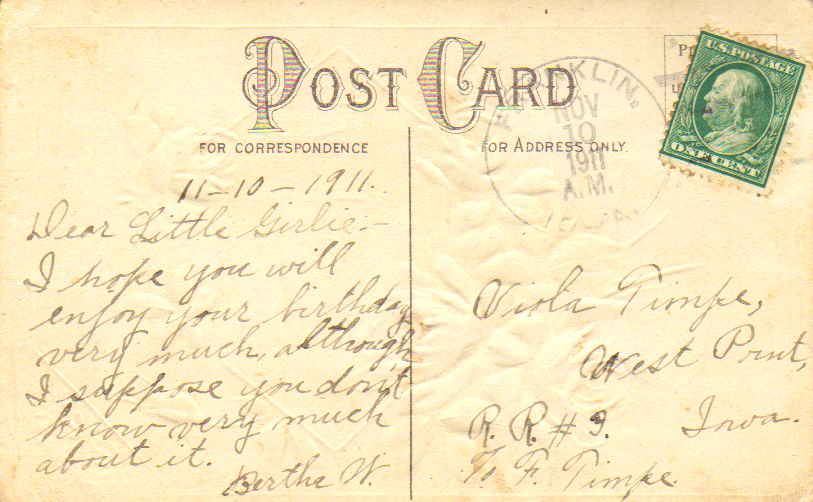 POST CARD
FOR CORRESPONDENCE
FOR ADDRESS ONLY.
U.S. POSTAGE
ONE CENT
FRANKLIN,
NOV
10
1911
A.M.
IOWA.
11-10-1911.
Dear Little Girlie:-
I hope you will
enjoy your birthday
very much, although
I suppose you don't
know very much
about it.
Bertha W.
Viola Timpe,
West Point,
R. R. # 3. Iowa.
c/o F. Timpe